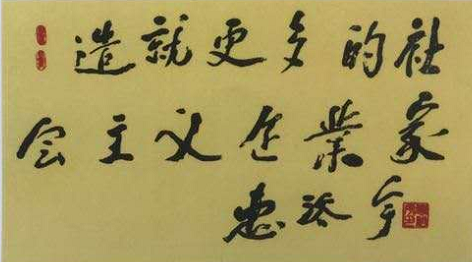 造就更多的社
会主义企業家
惠浴宇